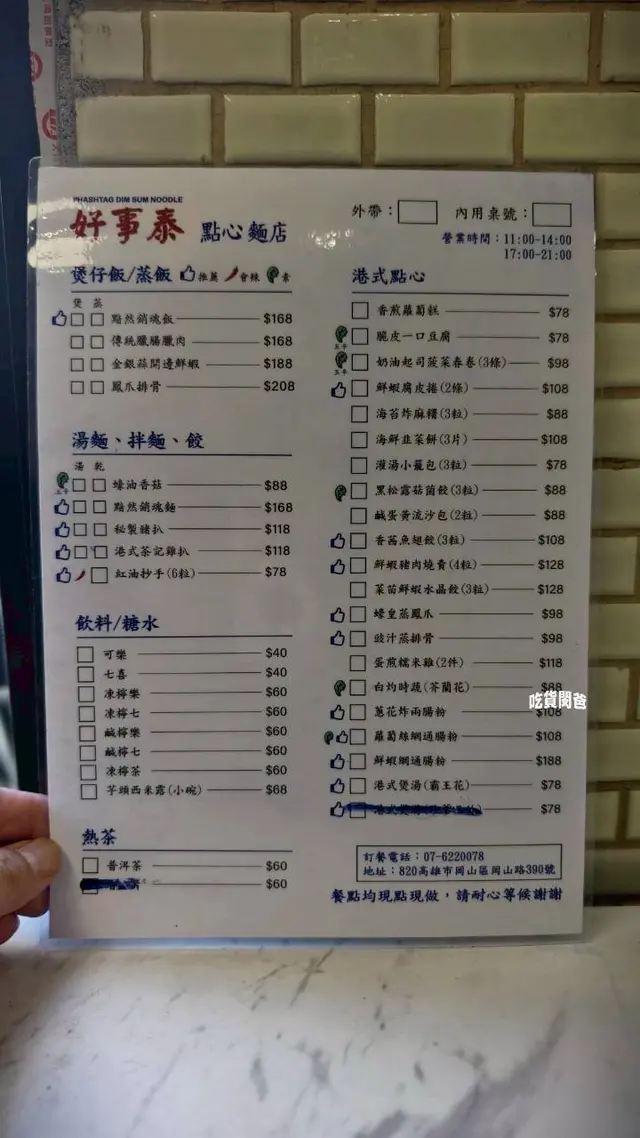 PHASHTAG DIM SUM NOODLE
好事泰 點心麵店
外帶： 內用桌號：
營業時間：11:00-14:00
17:00-21:00
煲仔飯/蒸飯 推薦 會辣 素
煲 蒸
黯然銷魂飯 $168
傳統臘腸臘肉 $168
金銀蒜開邊鮮蝦 $188
鳳爪排骨 $208
湯麵、拌麵、餃
湯 乾
蠔油香菇 $88
黯然銷魂麵 $168
秘製豬扒 $118
港式茶記雞扒 $118
紅油抄手(6粒) $78
飲料/糖水
可樂 $40
七喜 $40
凍檸樂 $60
凍檸七 $60
鹹檸樂 $60
鹹檸七 $60
凍檸茶 $60
芋頭西米露(小碗) $68
熱茶
普洱茶 $60
$60
港式點心
香煎蘿蔔糕 $78
脆皮一口豆腐 $78
奶油起司菠菜春卷(3條) $98
鮮蝦腐皮捲(2條) $108
海苔炸麻糬(3粒) $88
海鮮韭菜餅(3片) $108
灌湯小籠包(3粒) $78
黑松露菇菌餃(3粒) $88
鹹蛋黃流沙包(2粒) $88
香茜魚翅餃(3粒) $108
鮮蝦豬肉燒賣(4粒) $128
菜苗鮮蝦水晶餃(3粒) $128
蠔皇蒸鳳爪 $98
豉汁蒸排骨 $98
蛋煎糯米雞(2件) $118
白灼時蔬(芥蘭花) $88
蔥花炸兩腸粉 $108
蘿蔔絲網通腸粉 $108
鮮蝦網通腸粉 $188
港式煲湯(霸王花) $78
$78
訂餐電話：07-6220078
地址：820高雄市岡山區岡山路390號
餐點均現點現做，請耐心等候謝謝
吃貨閔爸